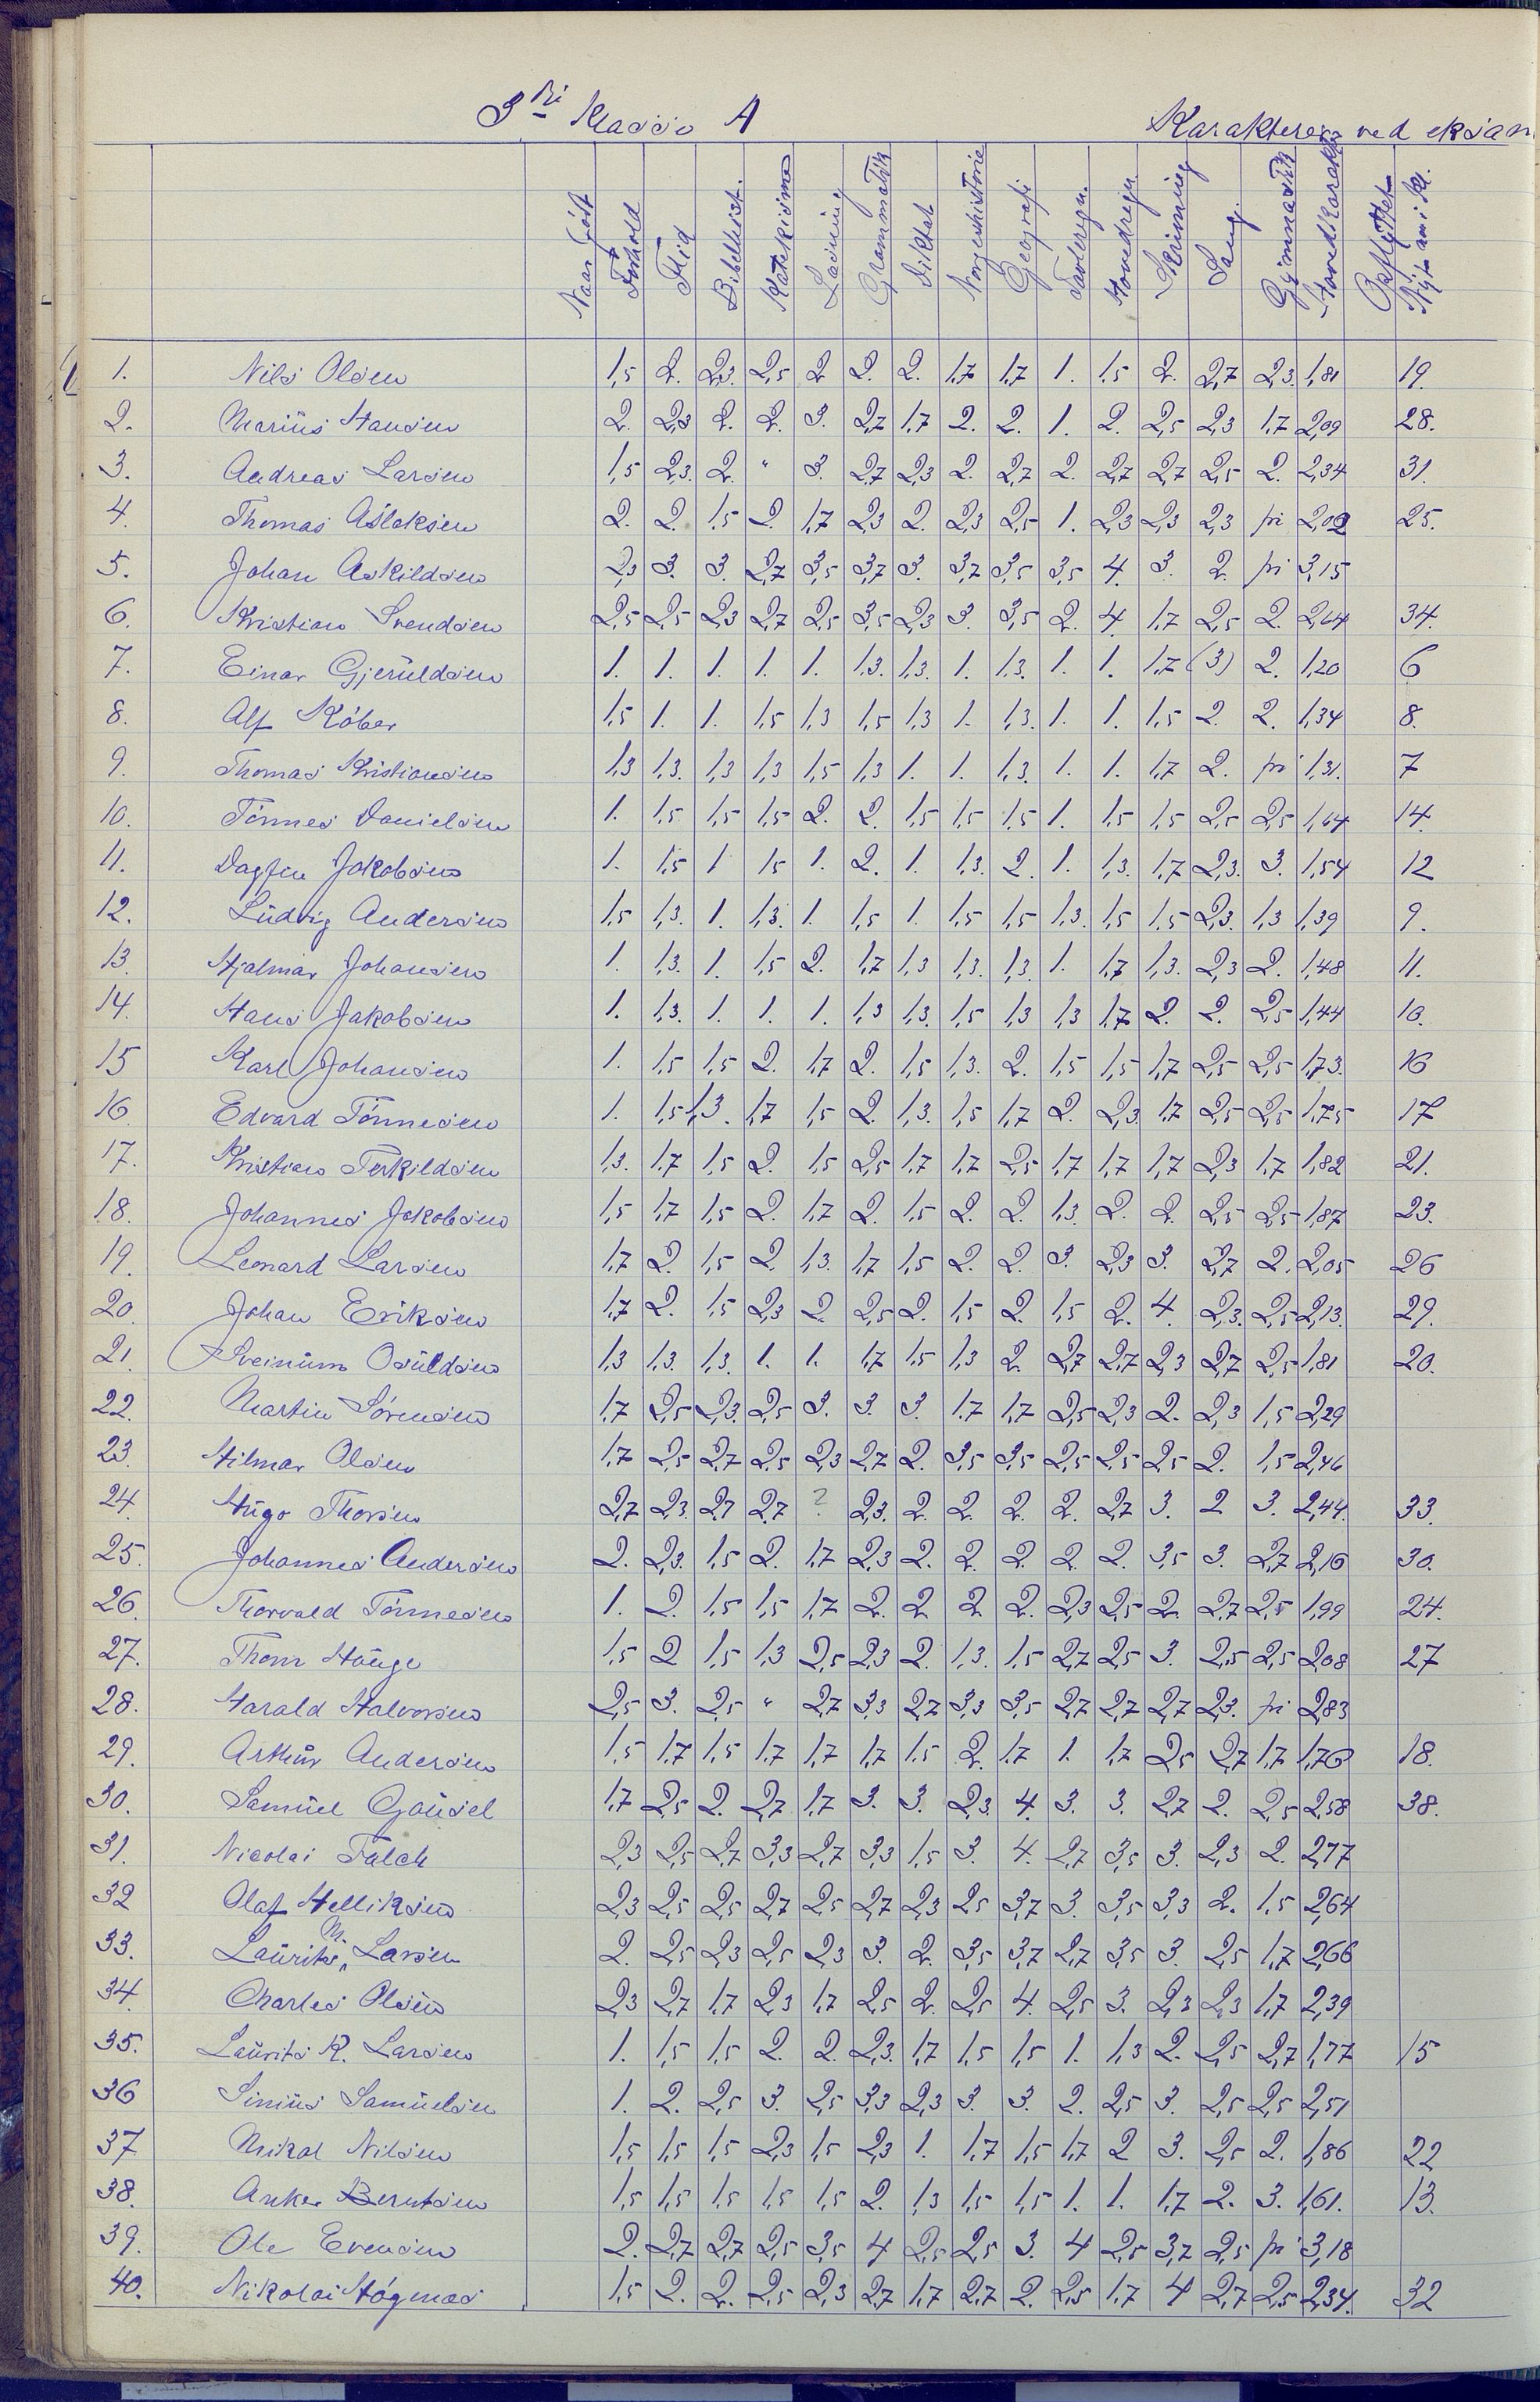 3die Klasse A Karakterer ved eksam
Naar født Forhold Flid Bibelhist. Katekisme Læsning Grammatik Diktat Norgeshistorie Geografi Tavleregn. Hovedregn. Skrivning Sang. Gymnastik Hovedkarakter Opflyttet Nyt no i Kl.
1. Nils Olsen 1,5 2. 2,3. 2,5 2 2. 2. 1,7 1,7 1. 1,5 2. 2,7 2,3. 1,81 19.
2. Marius Hansen 2. 2,3 2. 2. 3. 2,7 1,7 2. 2. 1. 2. 2,5 2,3 1,7 2,09 28.
3. Andreas Larsen 1,5 2,3. 2. " 3. 2,7 2,3 2. 2,7 2. 2,7 2,7 2,5 2. 2,34 31.
4. Thomas Aslaksen 2. 2. 1,5 2. 1,7 2,3 2. 2,3 2,5 1. 2,3 2,3 2,3 fri 2,02 25.
5. Johan Askildsen 2,3 3. 3. 2,7 3,5 3,7 3. 3,7 3,5 3,5 4. 3. 2. fri 3,15
6. Kristian Svendsen 2,5 2,5 2,3 2,7 2,5 3,5 2,3 3. 3,5 2. 4. 1,7 2,5 2. 2,64 34.
7. Einar Gjeruldsen 1. 1. 1. 1. 1. 1,3. 1,3. 1. 1,3. 1. 1. 1,7 (3) 2. 1,20 6
8. Alf Köber 1,5 1. 1. 1,5 1,3 1,5 1,3 1. 1,3. 1. 1. 1,5 2. 2. 1,34 8.
9. Thomas Kristiansen 1,3 1,3. 1,3 1,3 1,5 1,3 1. 1. 1,3. 1. 1. 1,7 2. fri 1,31. 7
10. Tönnes Danielsen 1. 1,5 1,5 1,5 2. 2. 1,5 1,5 1,5 1. 1,5 1,5 2,5 2,5 1,64 14.
11. Dagfin Jakobsen 1. 1,5 1 1,5 1. 2. 1. 1,3. 2. 1. 1,3. 1,7 2,3. 3. 1,54 12
12. Ludvig Andersen 1,5 1,3. 1. 1,3. 1. 1,5 1. 1,5 1,5 1,3. 1,5 1,5 2,3. 1,3 1,39 9.
13. Hjalmar Johansen 1. 1,3. 1. 1,5 2. 1,7 1,3 1,3. 1,3 1. 1,7 1,3. 2,3 2. 1,48 11.
14. Hans Jakobsen 1. 1,3. 1. 1. 1. 1,3 1,3. 1,5 1,3 1,3 1,7 2. 2. 2,5 1,44 10.
15 Karl Johansen 1. 1,5 1,5 2. 1,7 2. 1,5 1,3. 2. 1,5 1,5 1,7 2,5 2,5 1,73. 16
16. Edvard Tönnesen 1. 1,5 1,3. 1,7 1,5 2. 1,3. 1,5 1,7 2. 2,3. 1,7 2,5 2,5 1,75 17
17. Kristian Terkildsen 1,3. 1,7 1,5 2. 1,5 2,5 1,7 1,7 2,5 1,7 1,7 1,7 2,3 1,7 1,82 21.
18. Johannes Jakobsen 1,5 1,7 1,5 2. 1,7 2. 1,5 2. 2. 1,3. 2. 2. 2,5 2,5 1,87 23.
19. Leonard Larsen 1,7 2. 1,5 2. 1,3. 1,7 1,5 2. 2. 3. 2,3 3. 2,7 2. 2,05 26
20. Johan Eriksen 1,7 2. 1,5 2,3 2. 2,5 2. 1,5 2. 1,5 2. 4. 2,3. 2,5 2,13. 29.
21. Sveinum Osuldsen 1,3 1,3. 1,3. 1. 1. 1,7 1,5 1,3 2. 2,7 2,7 2,3 2,7 2,5 1,81 20.
22. Martin Sörensen 1,7 2,5 2,3. 2,5 3. 3. 3. 1,7 1,7 2,5 2,3 2. 2,3 1,5 2,29
23. Hilmar Olsen 1,7 2,5 2,7 2,5 2,3 2,7 2. 3,5 3,5 2,5 2,5 2,5 2. 1,5 2,46
24. Hugo Thorsen 2,7 2,3. 2,7 2,7 ? 2,3. 2. 2. 2. 2. 2,7 3. 2 3. 2,44. 33.
25. Johannes Andersen 2. 2,3. 1,5 2. 1,7 2,3 2. 2. 2. 2. 2. 3,5 3. 2,7 2,16 30.
26. Thorvald Tönnesen 1. 2. 1,5 1,5 1,7 2. 2. 2. 2. 2,3 2,5 2. 2,7 2,5 1,99 24.
27. Thom Hauge 1,5 2 1,5 1,3 2,5 2,3 2. 1,3. 1,5 2,7 2,5 3. 2,5 2,5 2,08 27
28. Harald Halvorsen 2,5 3. 2,5 " 2,7 3,3 2,7 3,3 3,5 2,7 2,7 2,7 2,3. fri 2,83
29. Arthur Andersen 1,5 1,7 1,5 1,7 1,7 1,7 1,5 2. 1,7 1. 1,7 2,5 2,7 1,7 1,76 18.
30. Samuel Gausel 1,7 2,5 2. 2,7 1,7 3. 3. 2,3 4. 3. 3. 2,7 2. 2,5 2,58 38.
31. Nicolai Falch 2,3 2,5 2,7 3,3 2,7 3,3 1,5 3. 4. 2,7 3,5 3. 2,3 2. 2,77
32 Olaf Helliksen 2,3 2,5 2,5 2,7 2,5 2,7 2,3 2,5 3,7 3. 3,5 3,3 2. 1,5 2,64
33. Laurits M. Larsen 2. 2,5 2,3 2,5 2,3 3. 2. 3,5 3,7 2,7 3,5 3. 2,5 1,7 2,66
34. Charles Olsen 2,3 2,7 1,7 2,3 1,7 2,5 2. 2,5 4. 2,5 3. 2,3 2,3 1,7 2,39
35. Laurits K. Larsen 1. 1,5 1,5 2. 2. 2,3. 1,7 1,5 1,5 1. 1,3 2. 2,5 2,7 1,77 15
36 Sinius Samuelsen 1. 2. 2,5 3. 2,5 3,3 2,3 3. 3. 2. 2,5 3. 2,5 2,5 2,51
37. Mikal Nilsen 1,5 1,5 1,5 2,3 1,5 2,3 1. 1,7 1,5 1,7 2 3. 2,5 2. 1,86 22
38. Anker Berntsen 1,5 1,5 1,5 1,5 1,5 2. 1,3 1,5 1,5 1. 1. 1,7 2. 3. 1,61. 13.
39. Ole Evensen 2. 2,7 2,7 2,5 3,5 4 2,5 2,5 3. 4 2,5 3,7 2,5 fri 3,18
40. Nikolai Högnas 1,5 2. 2. 2,5 2,3 2,7 1,7 2,7 2. 2,5 1,7 4 2,7 2,5 2,34. 32